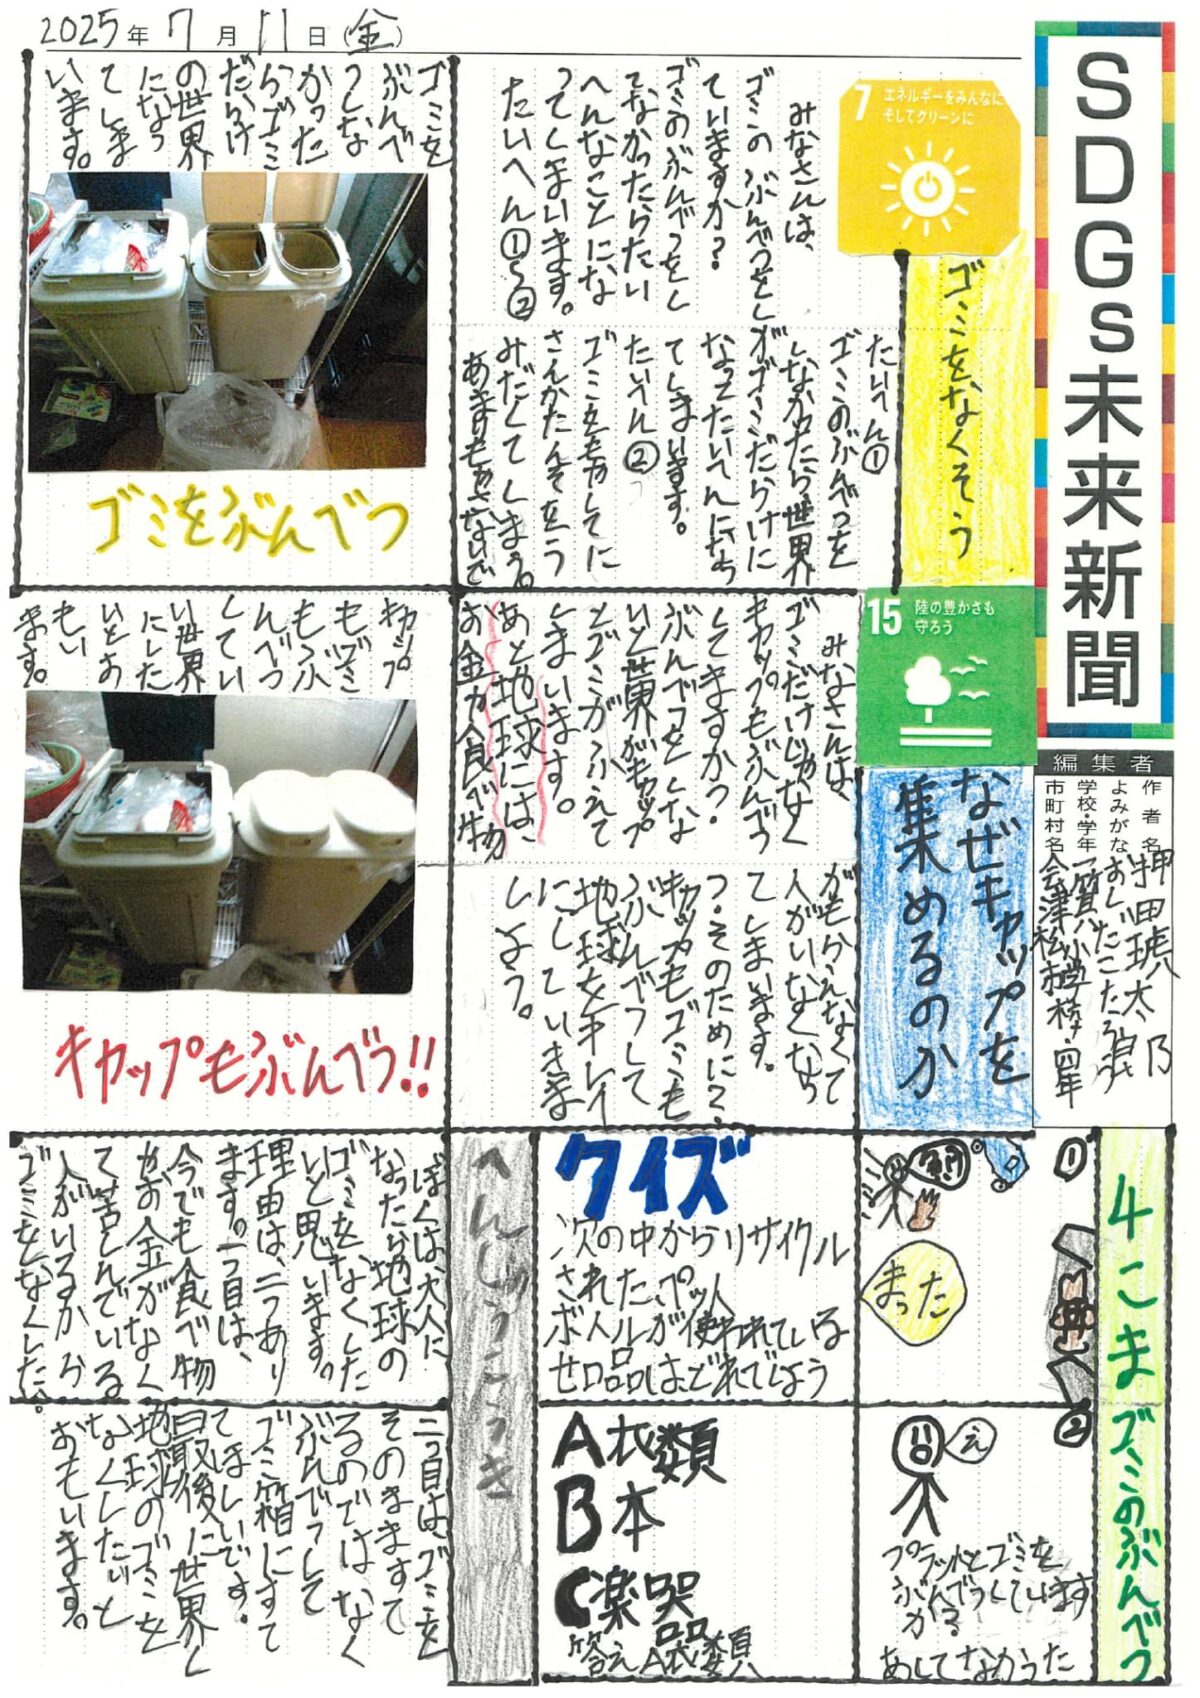 2025年7月11日(金)
SDGs未来新聞
編集者
作者名 押田琥太乃
よみがな おしだこたろう
学校・学年 一箕小学校・四年
市町村名 会津松
7 エネルギーをみんなに
そしてクリーンに
ゴミをなくそう
みなさんは、
ゴミのぶんべつをし
ていますか?
ゴミのぶんべつをし
てなかったらたい
へんなことにな
ってしまいます。
たいへん①〜②
たいへん①
ゴミのぶんべつを
しなかったら、世界
がゴミだらけに
なってたいへんになっ
てしまいます。
たいへん②
ゴミをもやしてに
さんかたんそをう
みだしてしまう。
あきすもやさないで
ゴミを
ぶんべ
つしな
かった
らゴミ
だらけ
の世界
になっ
てしま
います。
ゴミをぶんべつ
15 陸の豊かさも
守ろう
なぜキャップを
集めるのか
みなさんは、
ゴミだけじゃなく
キャップもぶんべつ
してますか?
ぶんべつをしな
いと世界がキャップ
とゴミがふえて
しまいます。
あと地球には、
お金か食べ物
がもらえなくて
人がいなくなっ
てしまいます。
つ、そのために?、
キャップもゴミも
ぶんべつして
地球をキレイ
にしていきま
しょう。
キャップ
もゴミ
もぶ
んべつ
してい
い世界
にした
いとお
もい
ます。
キャップもぶんべつ!!
4こま ゴミのぶんべつ
①
まった
②
え
プラットとゴミを
ぶんべつしています
か?
あしてなかった
クイズ
次の中からリサイクル
されたペット
ボトルが使われている
せ品はどれでしょう
A 衣類
B 本
C 楽器
答え A衣類
へんしゅうこうき
ぼくは、大人に
なったら地球の
ゴミをなくした
いと思います。
理由は、二つあり
ます。一つ目は、
今でも食べ物
やお金がなく
て苦しんでいる
人がいるから
ゴミをなくした。
二つ目は、ゴミを
そのまますて
るのではなく
ぶんべつして
ゴミ箱にすて
てほしいです。
最後に世界し
地球のゴミを
なくしたいと
おもいます。